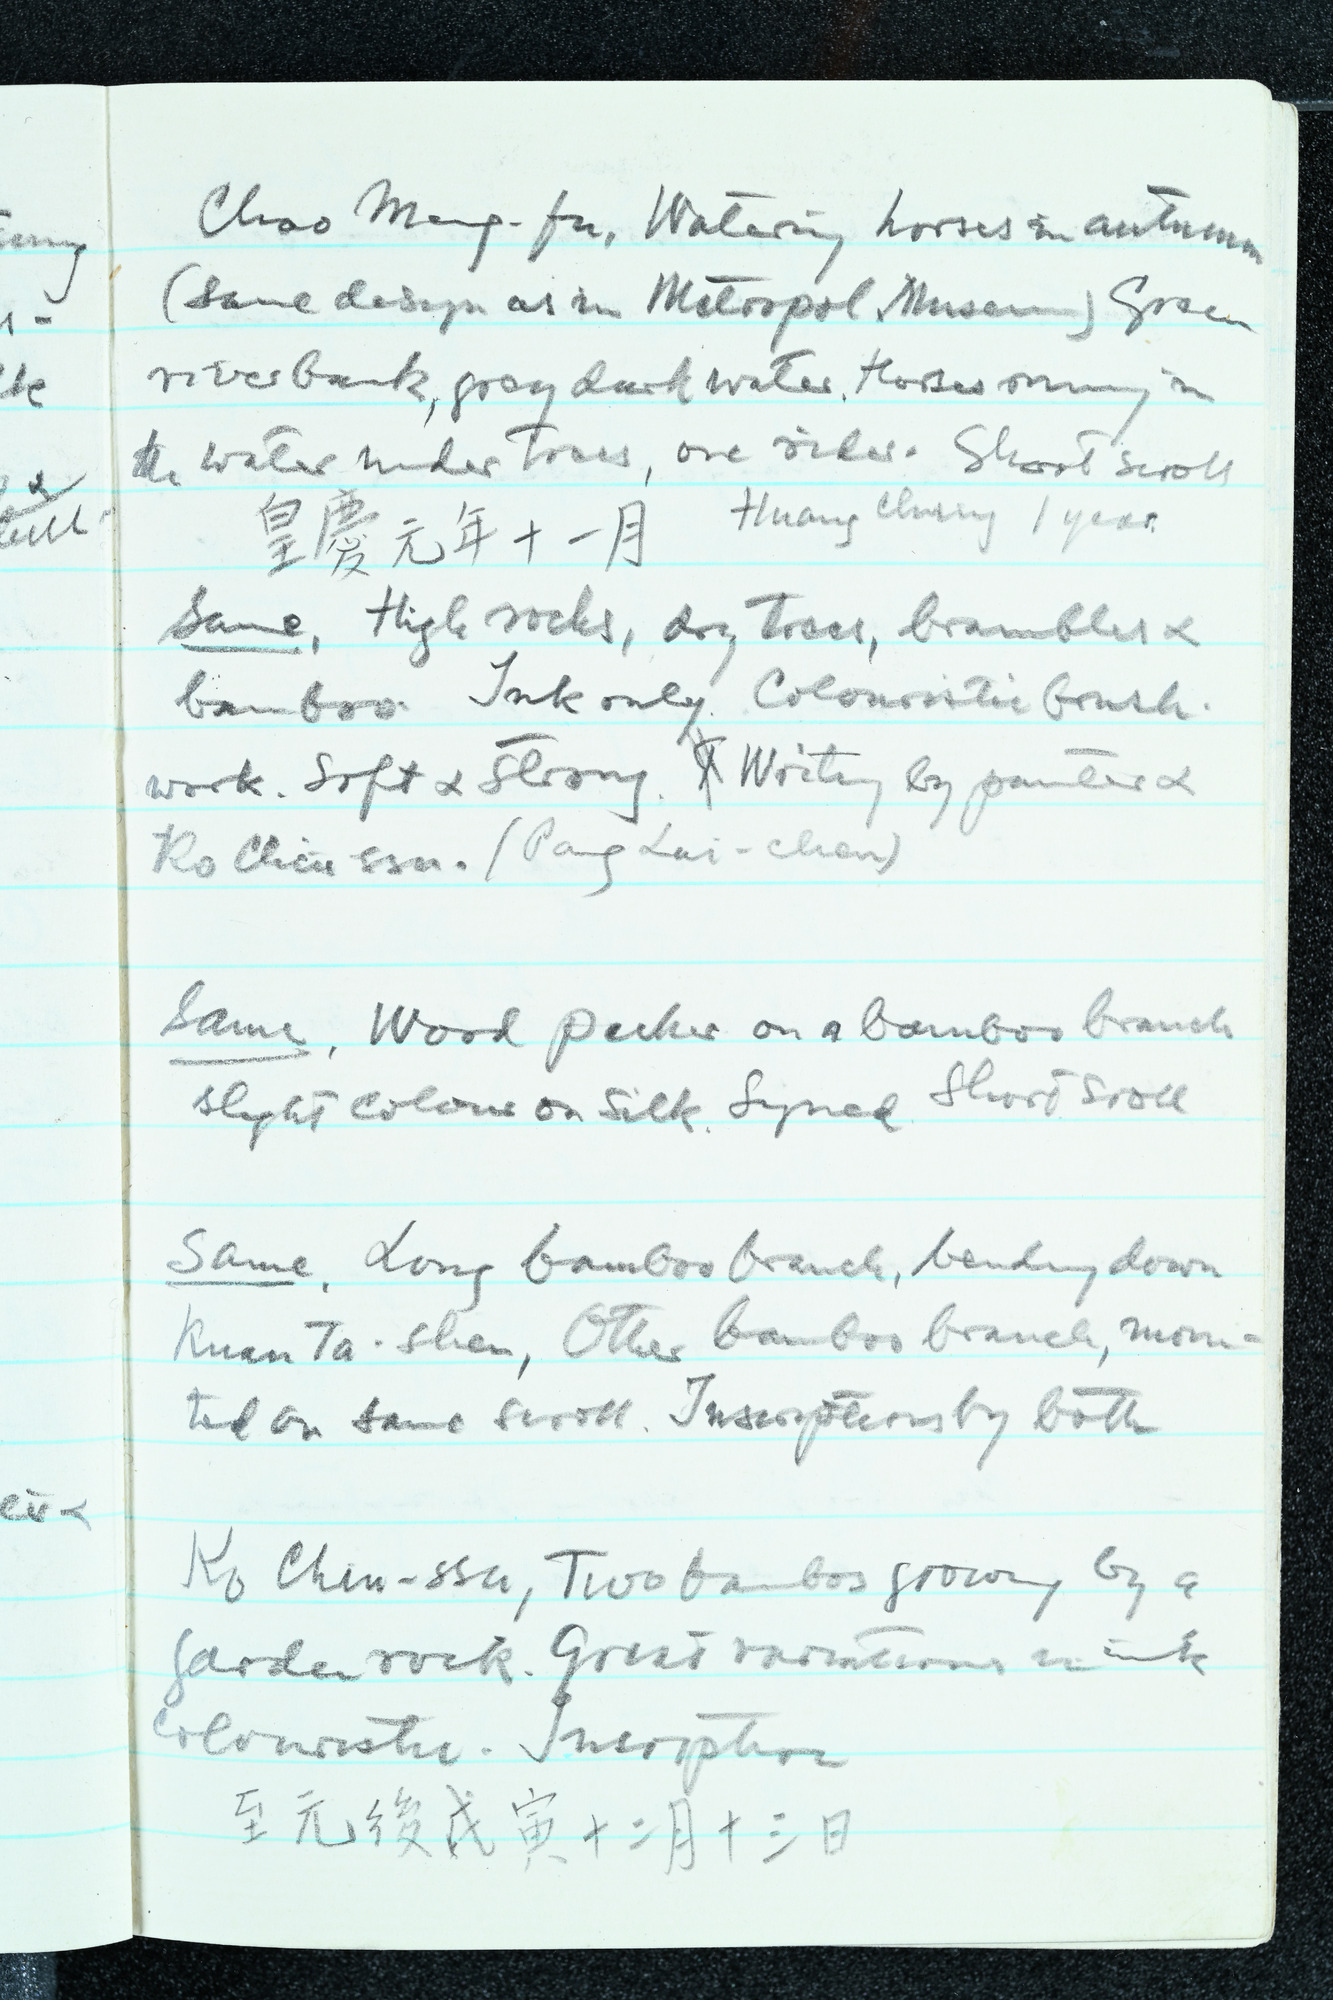 Chao Meng-fu, Watering horses in autumn
(Same design as in Metropol. Museum) Green
riverbank, grey dark water. Horses running in
the water under trees, one rider. Short scroll
皇慶元年十一月 Huang Ching 1 year
Same, High rocks, dry trees, brambles &
bamboo. Ink only. Colouristic brush-
work. Soft & strong. Writing by painter &
Ko Chiu ssu. (Pang Lai-chen)
Same, Wood pecker on a bamboo branch
slight colour on silk. Signed Short scroll
Same, Long bamboo branch, bending down
Kuan Ta-shen, Other bamboo branch, moun-
ted on same scroll. Inscriptions by both
Ko Chiu-ssu, Two bamboos growing by a
garden rock. Great variations in ink
colouristic. Inscription
至元後戊寅十二月十三日